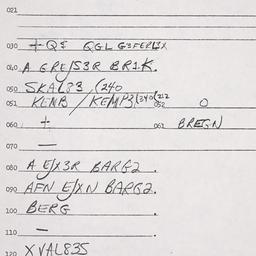 021
030 + QS QGL G3FERLIX
040 A GREJS3R BR1K.
050 SKAL83 (240
051 KENB / KEMP3 (340(212 052 O
060 + 061 BREGN
070 —
080 A EJX3R BARG2.
090 AFN EJXN BARG2.
100 BERG .
110 — .
120 XVAL835